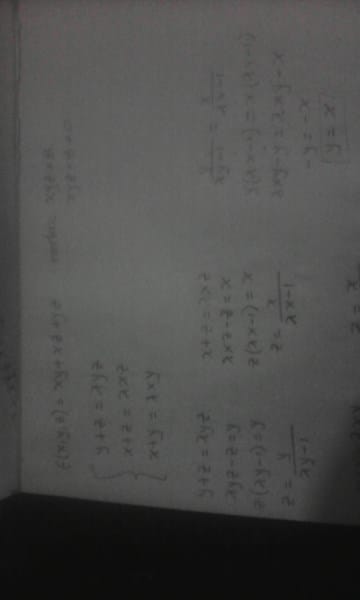 f(x,y,z) = xy+xz+yz
y+z = λyz
x+z = λxz
x+y = λxy
y+z = λyz
λyz-z=y
z(λy-1)=y
z = y/(λy-1)
x+z = λxz
λxz-z=x
z(λx-1)=x
z = x/(λx-1)
y/(λy-1) = x/(λx-1)
y(λx-1)=x(λy-1)
λxy-y=λxy-x
-y=-x
y=x
z=x